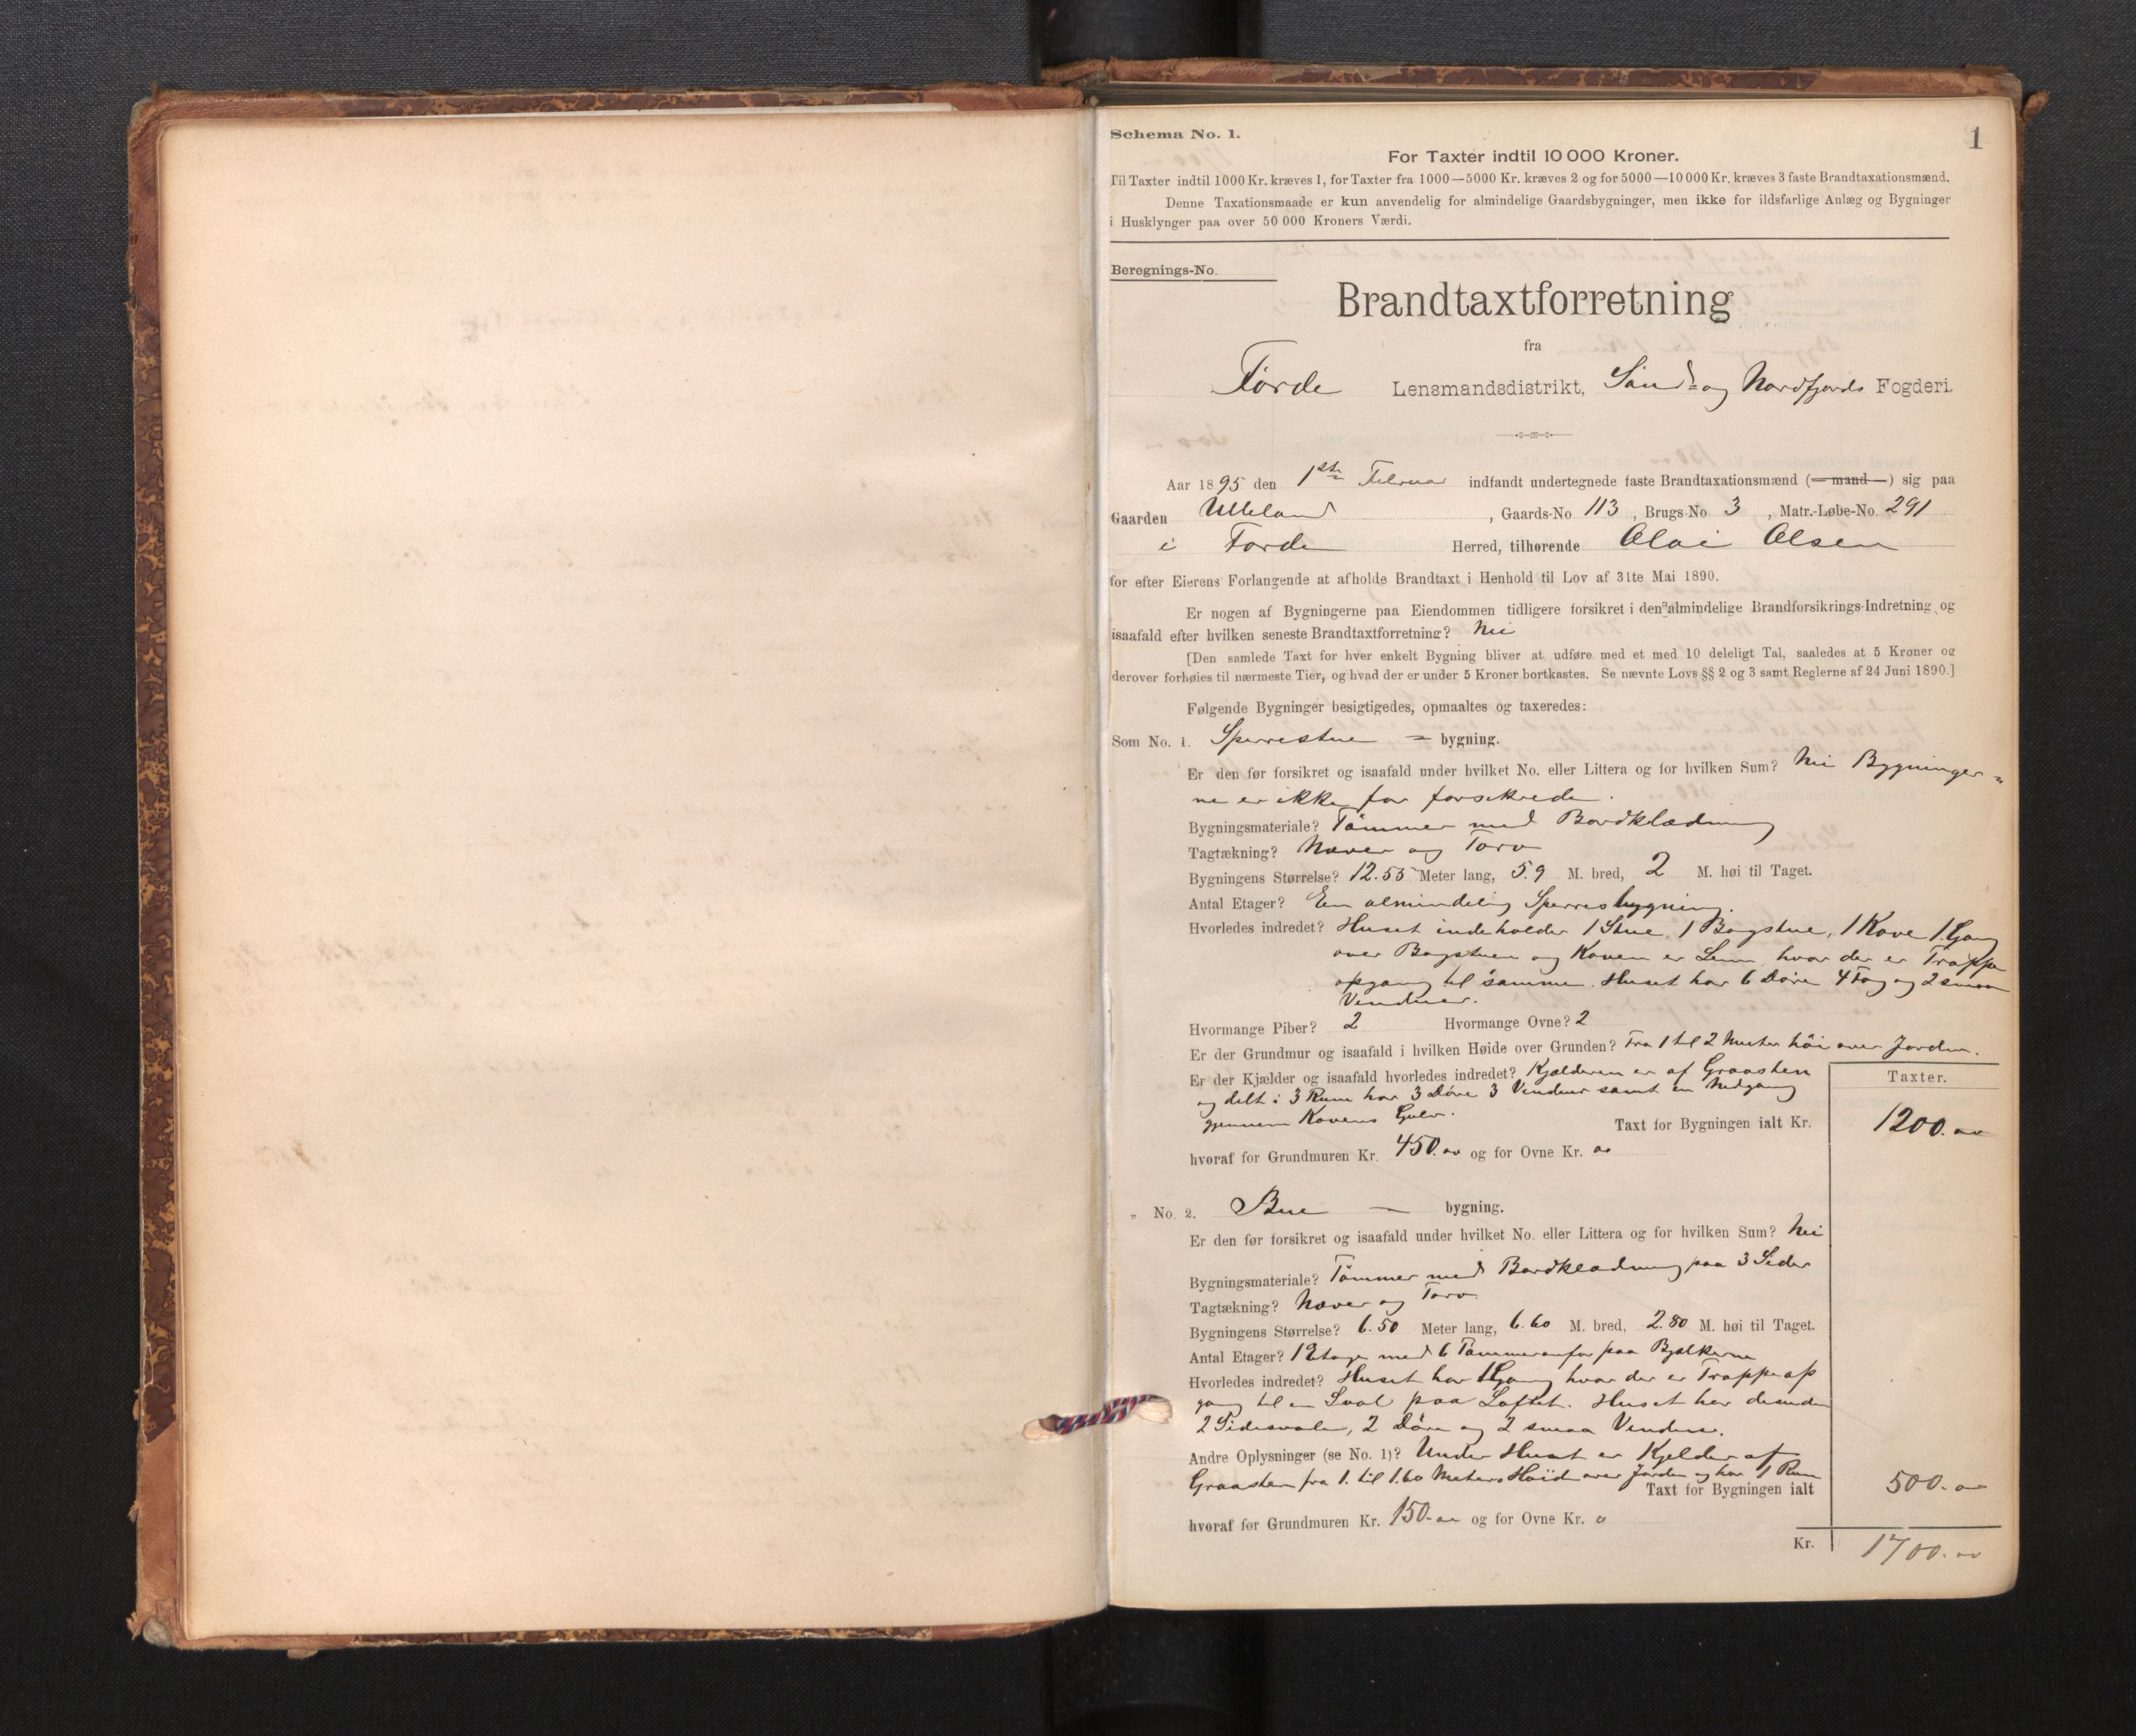 Schema No. 1.
1
For Taxter indtil 10 000 Kroner.
Til Taxter indtil 1000 Kr. kræves 1, for Taxter fra 1000—5000 Kr. kræves 2 og for 5000—10 000 Kr. kræves 3 faste Brandtaxationsmænd.
Denne Taxationsmaade er kun anvendelig for almindelige Gaardsbygninger, men ikke for ildsfarlige Anlæg og Bygninger
i Husklynger paa over 50 000 Kroners Værdi.
Beregnings-No.
Brandtaxtforretning
fra
Førde Lensmandsdistrikt, Sønd- og Nordfjords Fogderi.
Aar 1895 den 1ste Februar indfandt undertegnede faste Brandtaxationsmænd (— mand —) sig paa
Gaarden Ulleland, Gaards-No 113, Brugs-No 3, Matr.-Løbe-No. 291
i Førde Herred, tilhørende Olai Olsen
for efter Eierens Forlangende at afholde Brandtaxt i Henhold til Lov af 31te Mai 1890.
Er nogen af Bygningerne paa Eiendommen tidligere forsikret i den almindelige Brandforsikrings-Indretning og
isaafald efter hvilken seneste Brandtaxtforretning? Nei
[Den samlede Taxt for hver enkelt Bygning bliver at udføre med et med 10 deleligt Tal, saaledes at 5 Kroner og
derover forhøies til nærmeste Tier, og hvad der er under 5 Kroner bortkastes. Se nævnte Lovs §§ 2 og 3 samt Reglerne af 24 Juni 1890.]
Følgende Bygninger besigtigedes, opmaaltes og taxeredes:
Som No. 1. Sperrestue = bygning.
Er den før forsikret og isaafald under hvilket No. eller Littera og for hvilken Sum? Nei Bygninger=
ne er ikke før forsikrede.
Bygningsmateriale? Tømmer med Bordklædning
Tagtækning? Næver og Torv
Bygningens Størrelse? 12.55 Meter lang, 5.9 M. bred, 2 M. høi til Taget.
Antal Etager? En almindelig Sperresbygning.
Hvorledes indredet? Huset indeholder 1 Stue, 1 Bagstue, 1 Kove 1 Gang
over Bagstuen og Koven er Lem, hvor der er Trappe
opgang til samme. Huset har 6 Døre 4 Fag og 2 smaa
Venduer.
Hvormange Piber? 2 Hvormange Ovne? 2
Er der Grundmur og isaafald i hvilken Høide over Grunden? Fra 1 til 2 Meter høi over Jorden.
Er der Kjælder og isaafald hvorledes indredet? Kjælderen er af Graasten
og delt i 3 Rum har 3 Døre 3 Venduer samt en Nedgang
gjennem Kovens Gulv.
Taxter.
Taxt for Bygningen ialt Kr. 1200.
hvoraf for Grundmuren Kr. 450. og for Ovne Kr.
„ No. 2. Bue — bygning.
Er den før forsikret og isaafald under hvilket No. eller Littera og for hvilken Sum? Nei
Bygningsmateriale? Tømmer med Bordklædning paa 3 Sider
Tagtækning? Næver og Torv
Bygningens Størrelse? 6.50 Meter lang, 6.60 M. bred, 2.80 M. høi til Taget.
Antal Etager? 1 Etage med 6 Tømmer paa Bjelkerne
Hvorledes indredet? Huset har 1 Gang hvor der er Trappeop
gang til en Sval paa Loftet. Huset har desuden
2 Sidesvaler, 2 Døre og 2 smaa Venduer.
Andre Oplysninger (se No. 1)? Under Huset er Kjelder af
Graasten fra 1. til 1.60 Meters Høide over Jorden og har 1 Rum
Taxt for Bygningen ialt 500.
hvoraf for Grundmuren Kr. 150. og for Ovne Kr.
Kr. 1700.